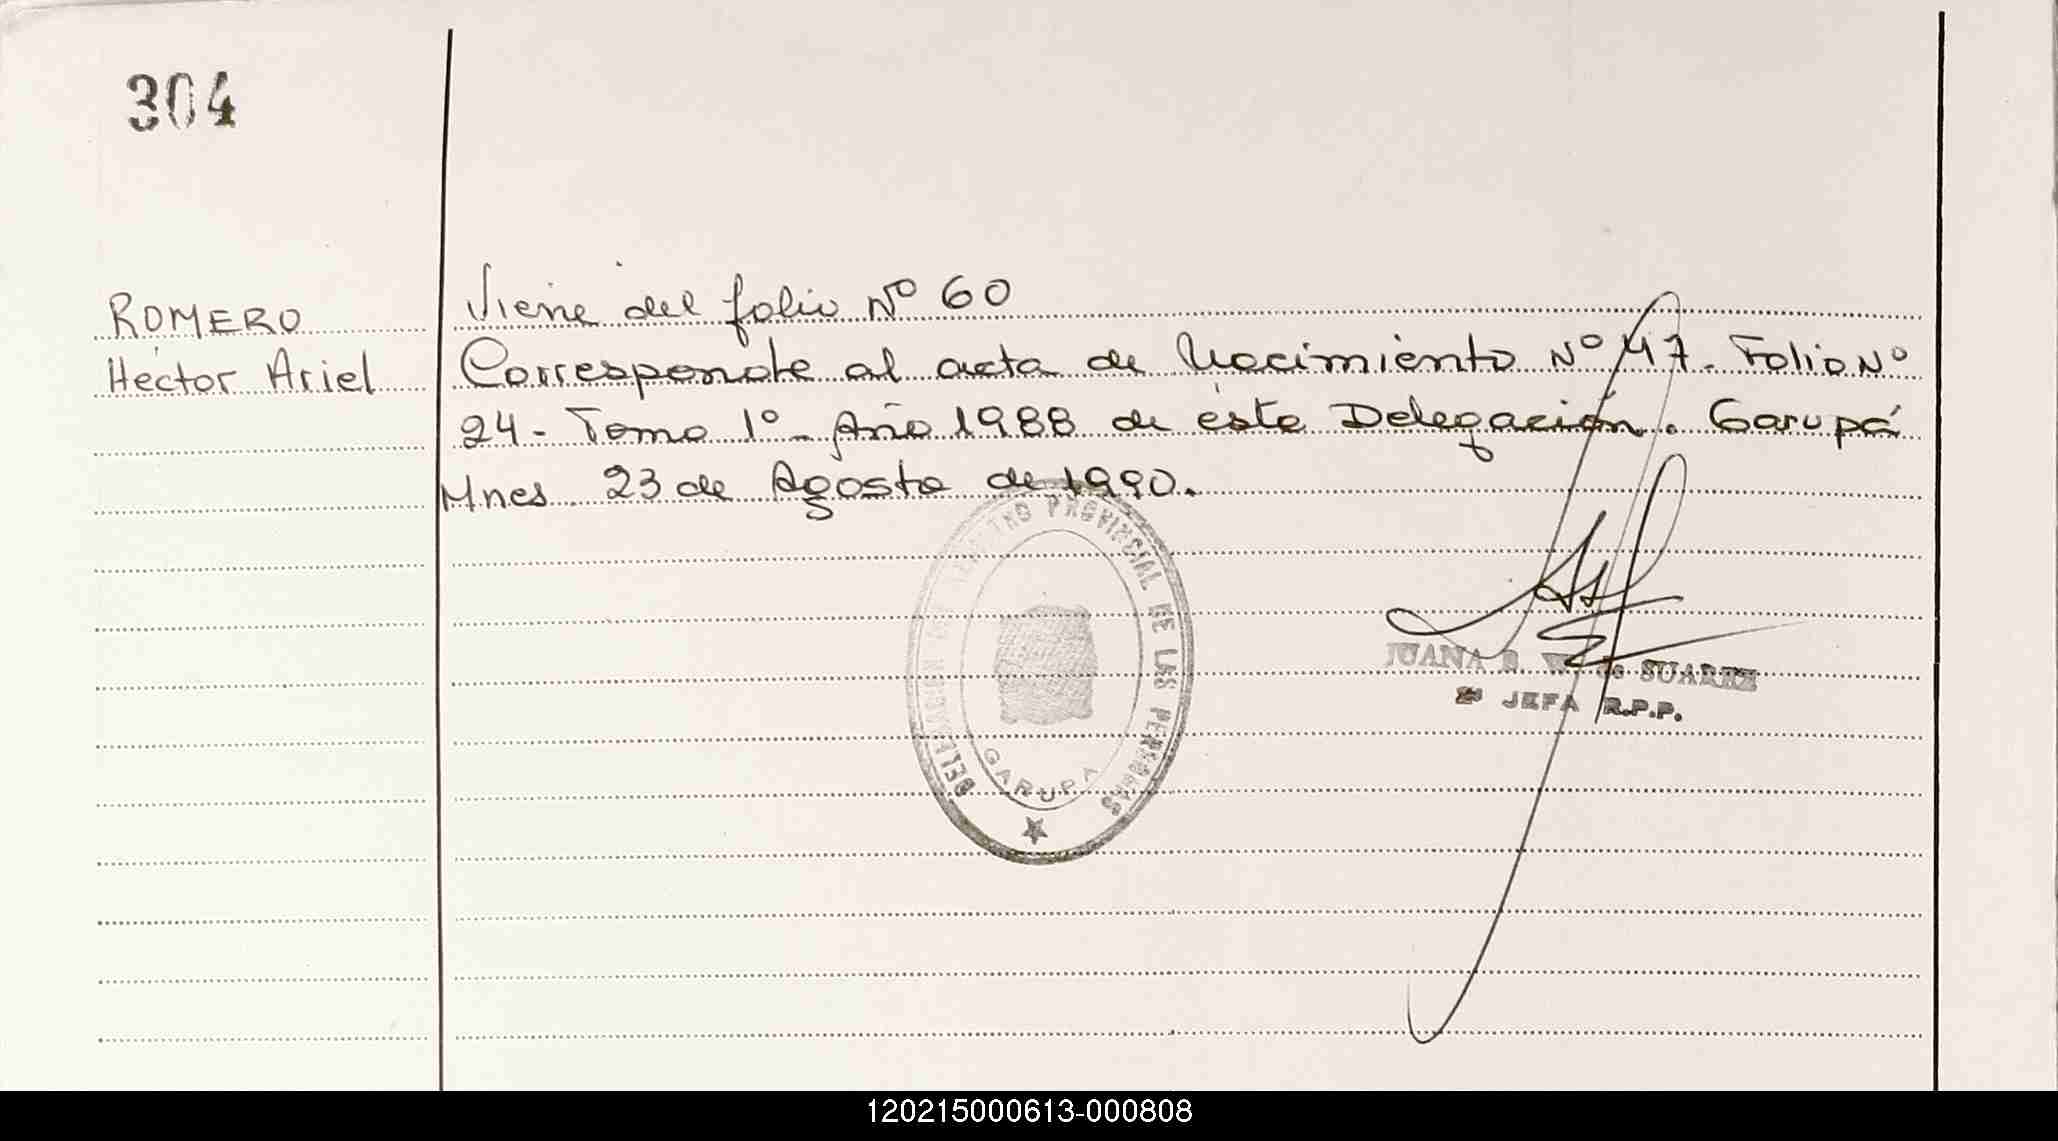 304
ROMERO
Héctor Ariel
Viene del folio Nº 60
Corresponde al acta de Nacimiento Nº 47. Folio Nº
24- Tomo 1º- Año 1988 de ésta Delegación. Garupá
Mnes. 23 de Agosto de 1990.
DELEGACION REGISTRO PROVINCIAL DE LAS PERSONAS
GARUPA
JUANA de SUAREZ
JEFA R.P.P.
120215000613-000808